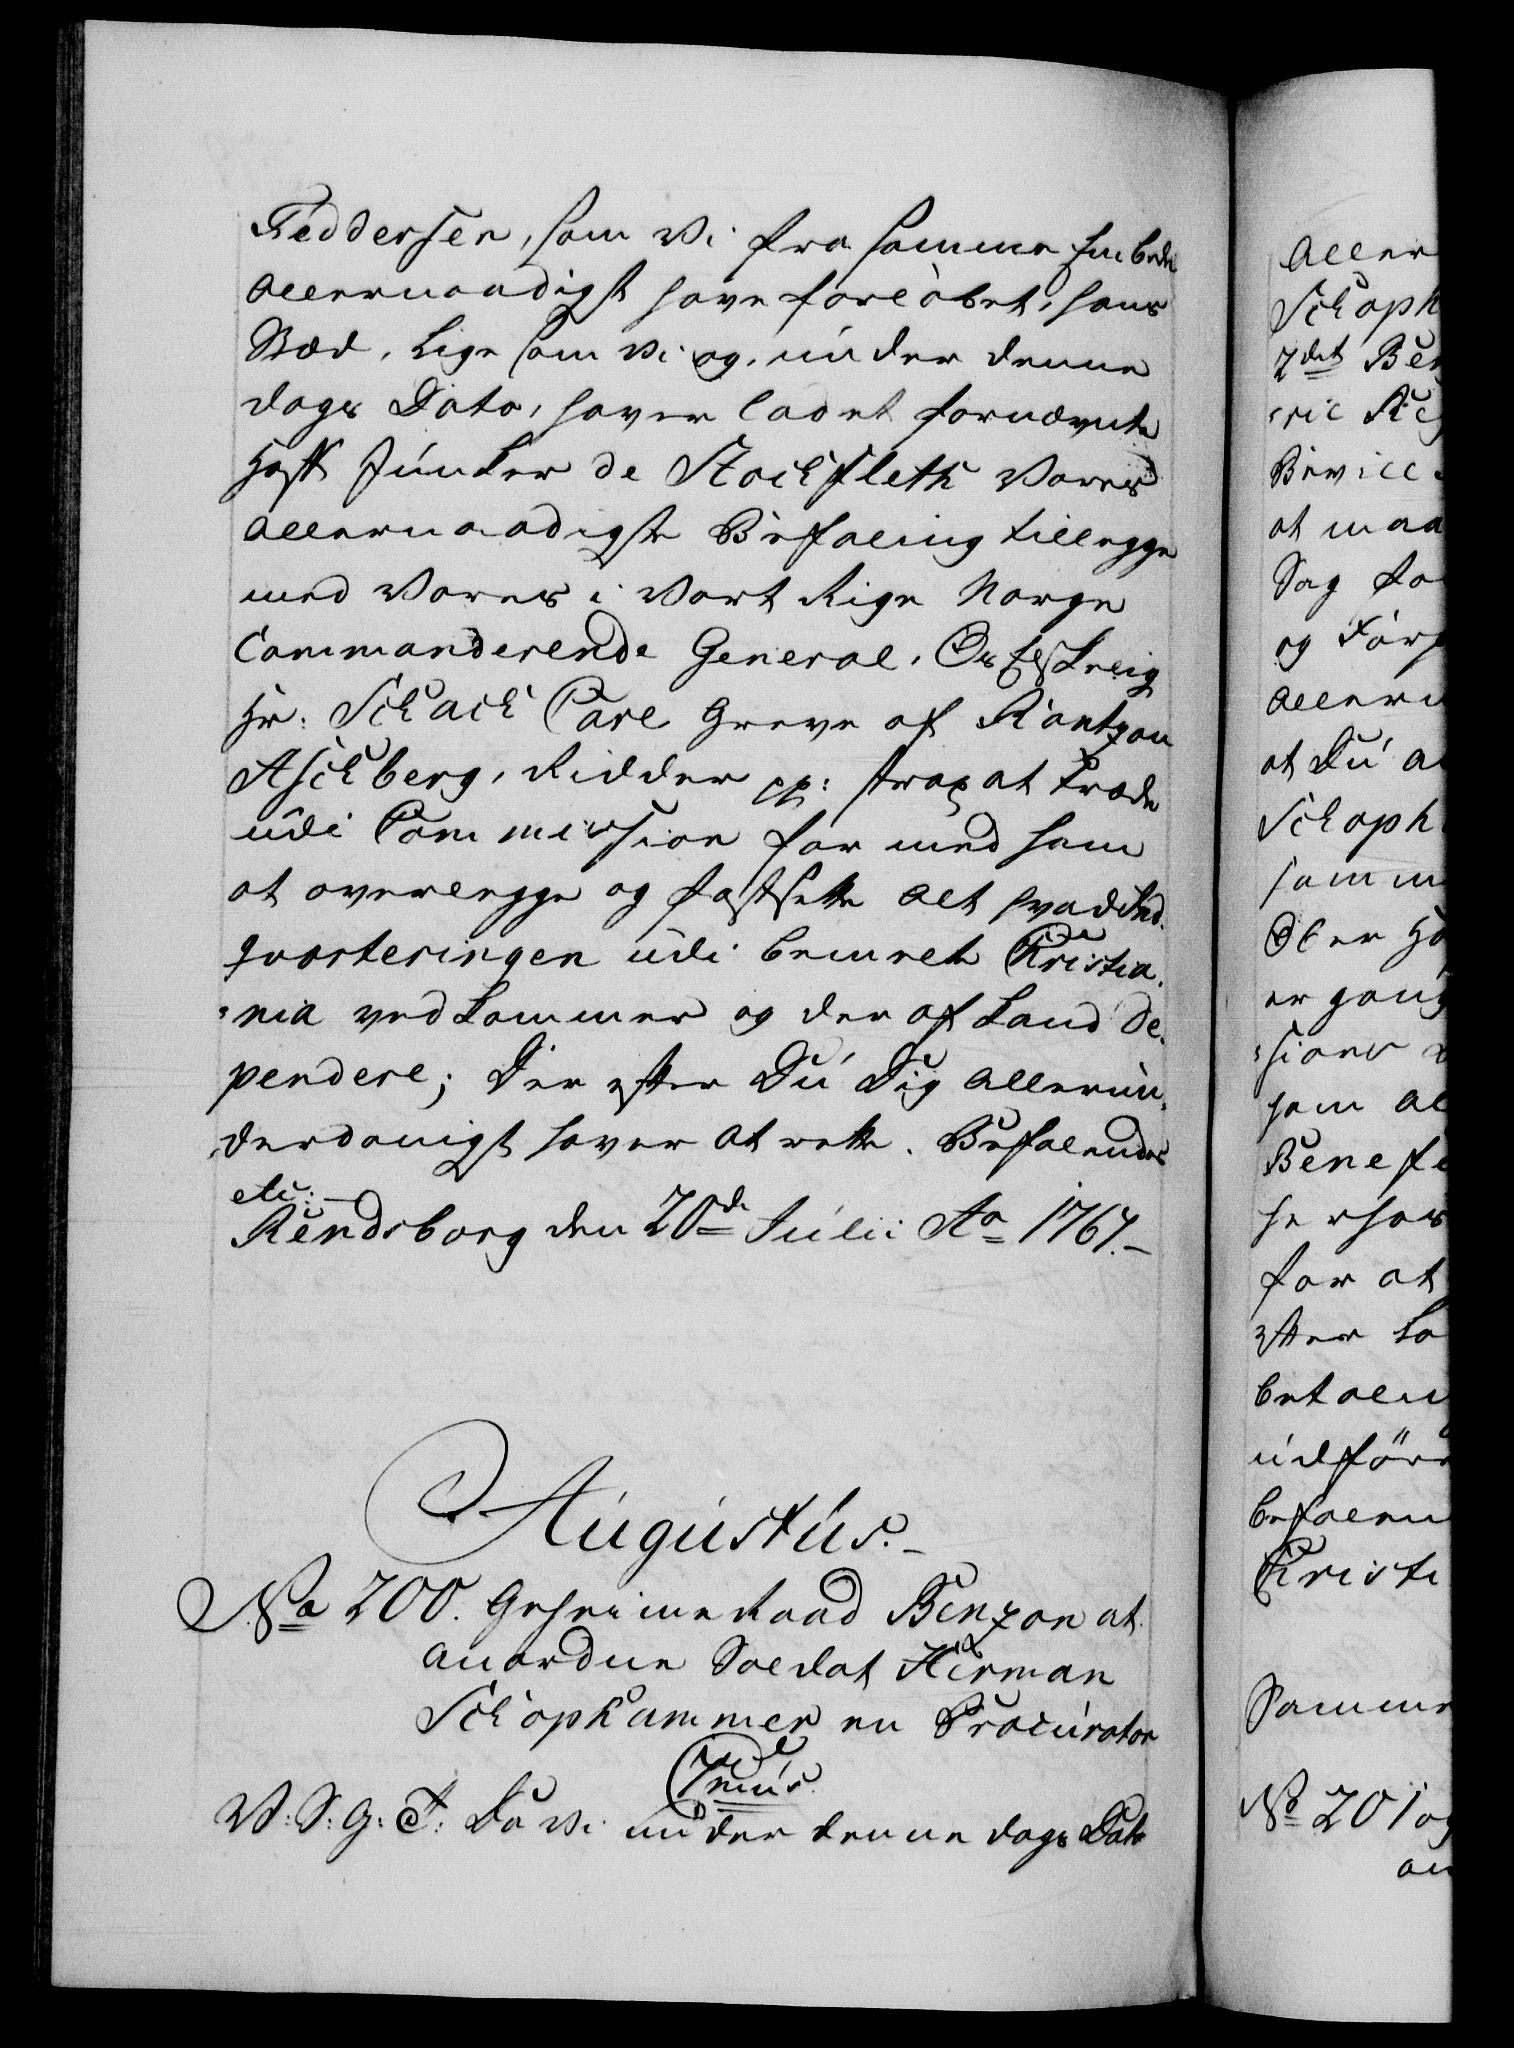 Feddersen, som Vi fra samme Embede
allernaadigst have forløvet, hans
Stæd, lige som Vi og, under denne
dags Dato, haver ladet fornævnte
Hoff Junker de Stockfleth Vores
allernaadigste Befaling tillegge
med Vores i Vort Rige Norge
Commanderende General,
Hr: Schack Carl Greve af Rantzou
Aschberg, Ridder pp: strax at træde
udi Commission for med ham
at overlegge og fastsette alt hvad Ind-
qvarteringen udi bemelte Christia-
-nia vedkommer og deraf kand de-
pendere; Der efter Du Dig allerun-
derdanigst haver at rette. Befalendes
etc:
Rendsborg den 20de Julii Ao 1767.-
Augustus.-
No 200. Geheime Raad Benzon at
anordne Soldat Herman
Schophammer en Procurator
C7mus.
V: S: G: T: Da Vi under denne dags Dato
aller
Schoph
2det Ben
-ric
Bevill
at maa
Sag for
og
allern
at Du a
Schoph
samme
Ober Ho
er gang
-sions
som al
Benefi
for at
efter Lo
betalen
udför
befalen
Christi
Samme
No 201 og
an